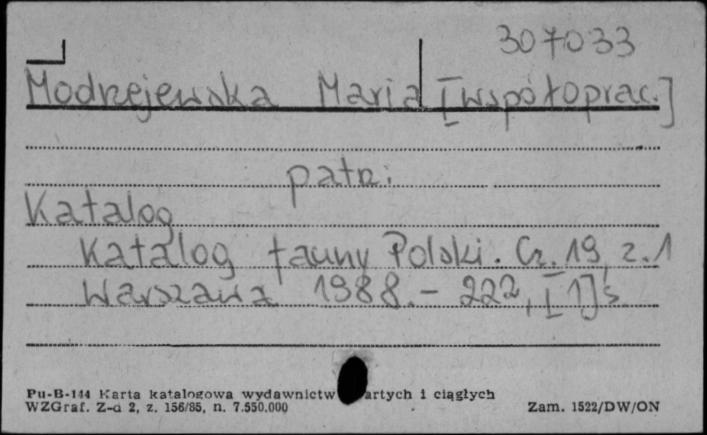 307033
Modrzejewska Maria [współoprac.]
patrz:
Katalog
Katalog fauny Polski. Cz. 19, z. 1
Warszawa 1988. - 222, [1] s.
Pu-B-144 Karta katalogowa wydawnictw artych i ciągłych
WZGraf. Z-d 2, z. 156/85, n. 7.550.000
Zam. 1522/DW/ON